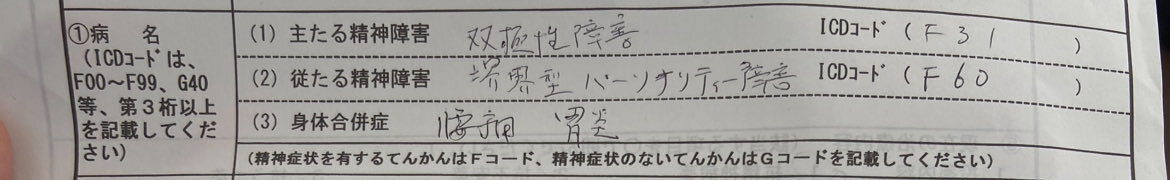 ①病　名
（ICDｺｰﾄﾞは、
F00～F99、G40
等、第３桁以上
を記載してくだ
さい）
(1) 主たる精神障害　双極性障害　ICDｺｰﾄﾞ（F31）
(2) 従たる精神障害　境界型パーソナリティー障害　ICDｺｰﾄﾞ（F60）
(3) 身体合併症　腰痛　胃炎
（精神症状を有するてんかんはＦコード、精神症状のないてんかんはＧコードを記載してください）